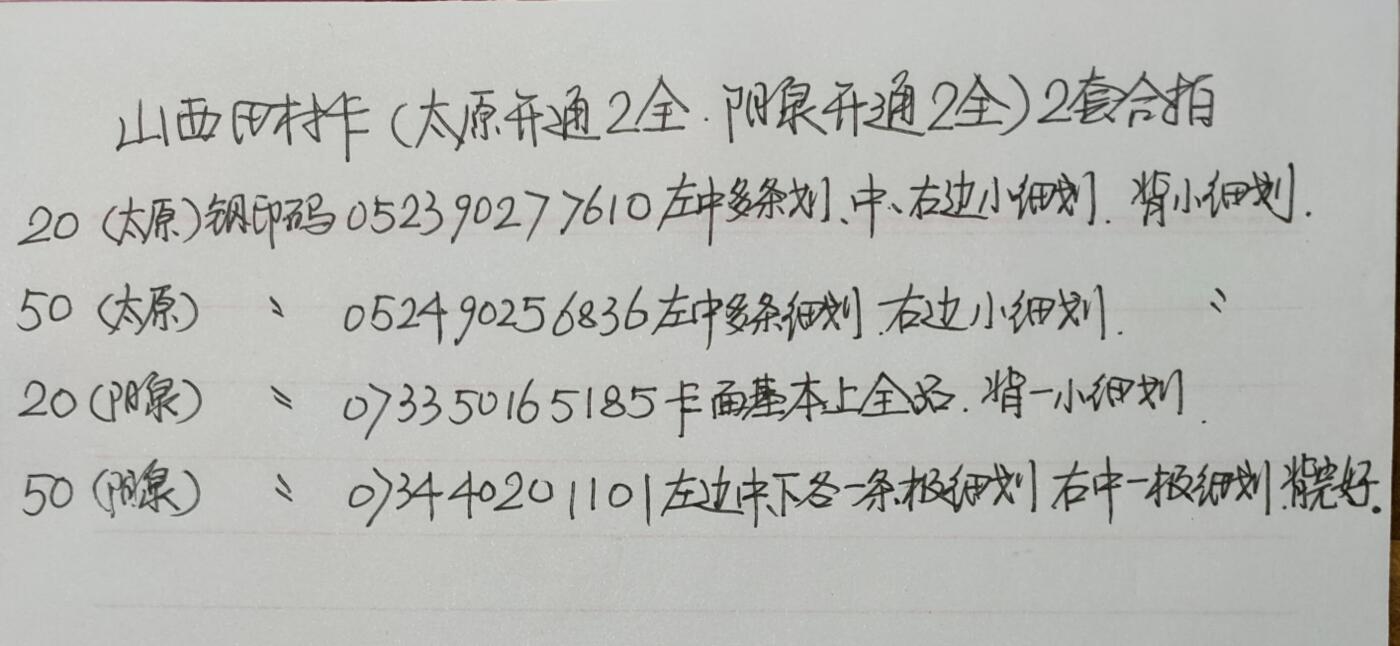 山西田村卡(太原开通2全.阳泉开通2全)2套合拍
20(太原)钢印码052390277610左中多条划、中、右边小细划.背小细划.
50(太原) 〃 052490256836左中多条细划.右边小细划. 〃
20(阳泉) 〃 073350165185卡面基本上全品.背一小细划.
50(阳泉) 〃 073440201101左边中、下各一条极细划右中一极细划.背完好。